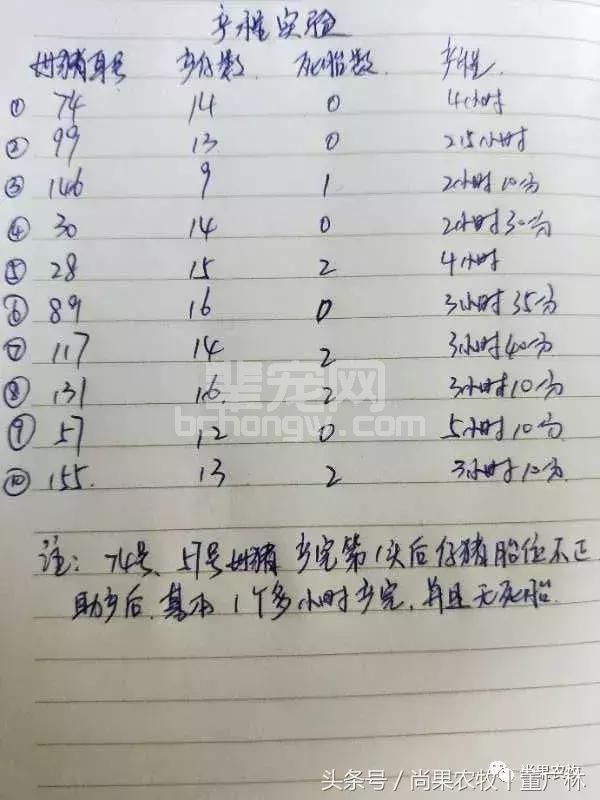 产程实验
母猪耳号 产仔数 死胎数 产程
① 74 14 0 4小时
② 99 13 0 2.5小时
③ 146 9 1 2小时10分
④ 30 14 0 2小时30分
⑤ 28 15 2 4小时
⑥ 89 16 0 3小时35分
⑦ 117 14 2 3小时40分
⑧ 131 16 2 3小时10分
⑨ 57 12 0 5小时10分
⑩ 155. 13 2 3小时10分
辈宠网
bchongw.com
注: 74号、57号母猪产完第1头后仔猪胎位不正
助产后,基本1个多小时产完,并且无死胎.
尚果农牧
头条号 / 尚果农牧 董广林